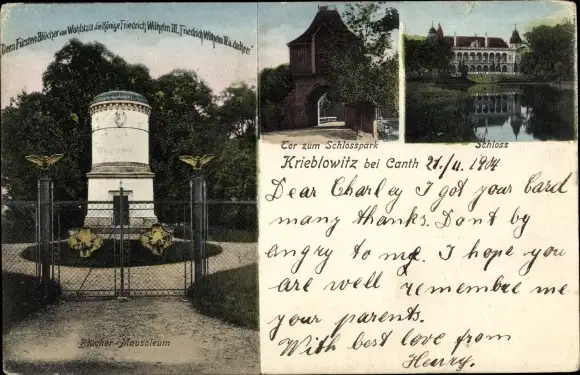 "Dem Fürsten Blücher von Wahlstatt die Könige Friedrich Wilhelm III., Friedrich Wilhelm IV. u. das Heer."
Tor zum Schlosspark
Schloss
Krieblowitz bei Canth 21./4. 1904
Dear Charley I got your Card
many thanks. Dont by
angry to me. I hope you
are well remembre me
your parents.
With best love from
Henry.
Blücher-Mausoleum